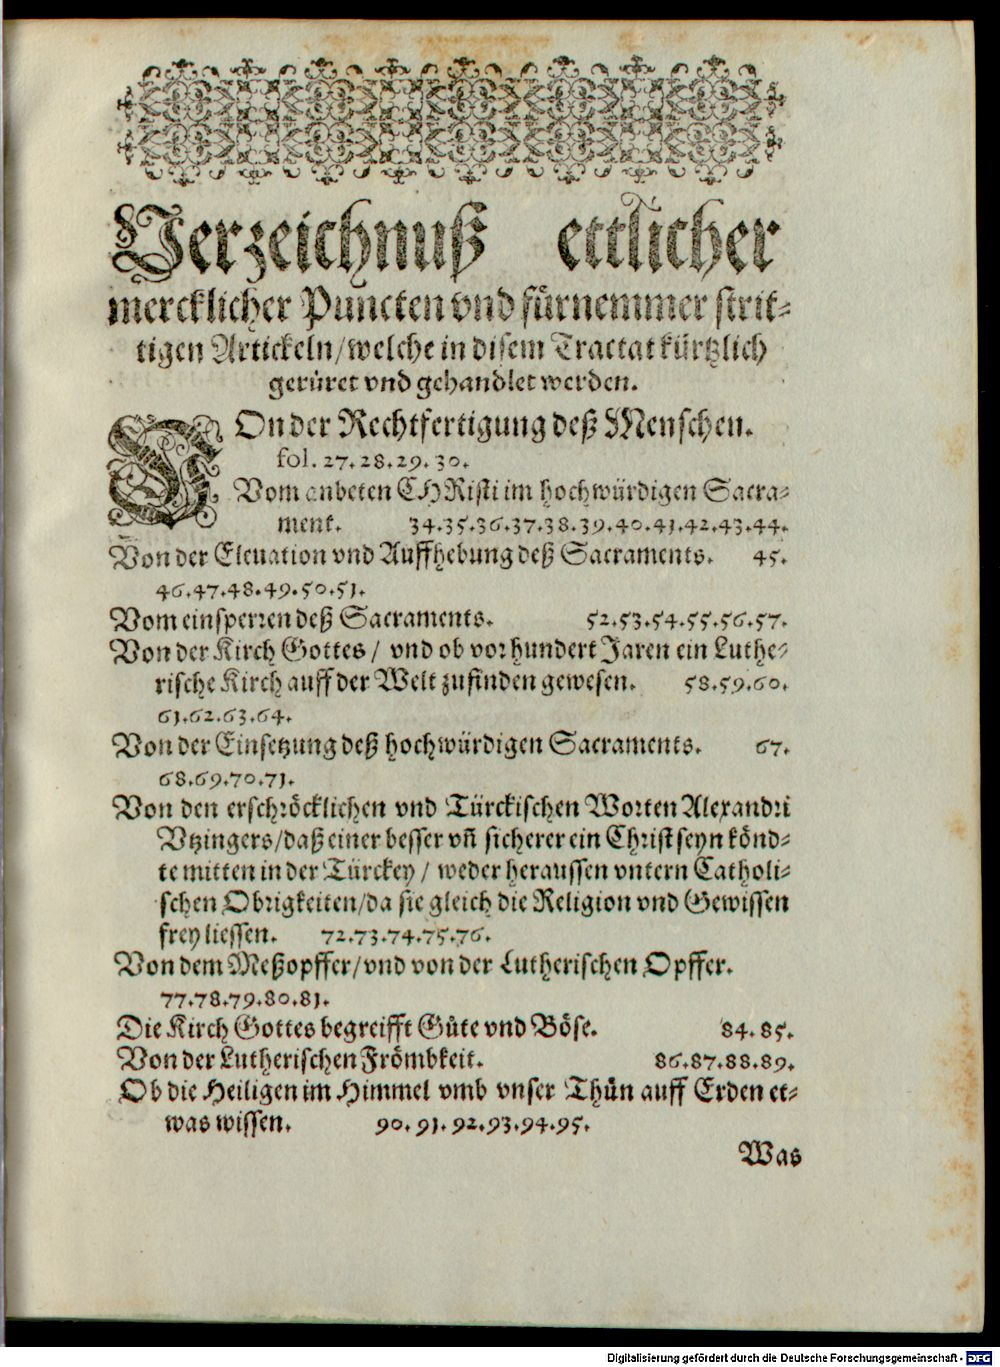 Verzeichnuß ettlicher
mercklicher Puncten vnd fürnemmer strit-
tigen Artickeln/welche in disem Tractat kürtzlich
gerüret vnd gehandlet werden.
VOn der Rechtfertigung deß Menschen.
fol. 27. 28. 29. 30.
Vom anbeten CHRisti im hochwürdigen Sacra-
ment. 34. 35. 36. 37. 38. 39. 40. 41. 42. 43. 44.
Von der Eleuation vnd Auffhebung deß Sacraments. 45.
46. 47. 48. 49. 50. 51.
Vom einsperren deß Sacraments. 52. 53. 54. 55. 56. 57.
Von der Kirch Gottes / vnd ob vor hundert Jaren ein Luthe-
rische Kirch auff der Welt zufinden gewesen. 58. 59. 60.
61. 62. 63. 64.
Von der Einsetzung deß hochwürdigen Sacraments. 67.
68. 69. 70. 71.
Von den erschröcklichen vnd Türckischen Worten Alexandri
Vtzingers/daß einer besser vñ sicherer ein Christ seyn könd-
te mitten in der Türckey / weder heraussen vntern Catholi-
schen Obrigkeiten/da sie gleich die Religion vnd Gewissen
frey liessen. 72. 73. 74. 75. 76.
Von dem Meßopffer/vnd von der Lutherischen Opffer.
77. 78. 79. 80. 81.
Die Kirch Gottes begreifft Gůte vnd Böse. 84. 85.
Von der Lutherischen Frömbkeit. 86. 87. 88. 89.
Ob die Heiligen im Himmel vmb vnser Thůn auff Erden et-
was wissen. 90. 91. 92. 93. 94. 95.
Was
Digitalisierung gefördert durch die Deutsche Forschungsgemeinschaft - DFG